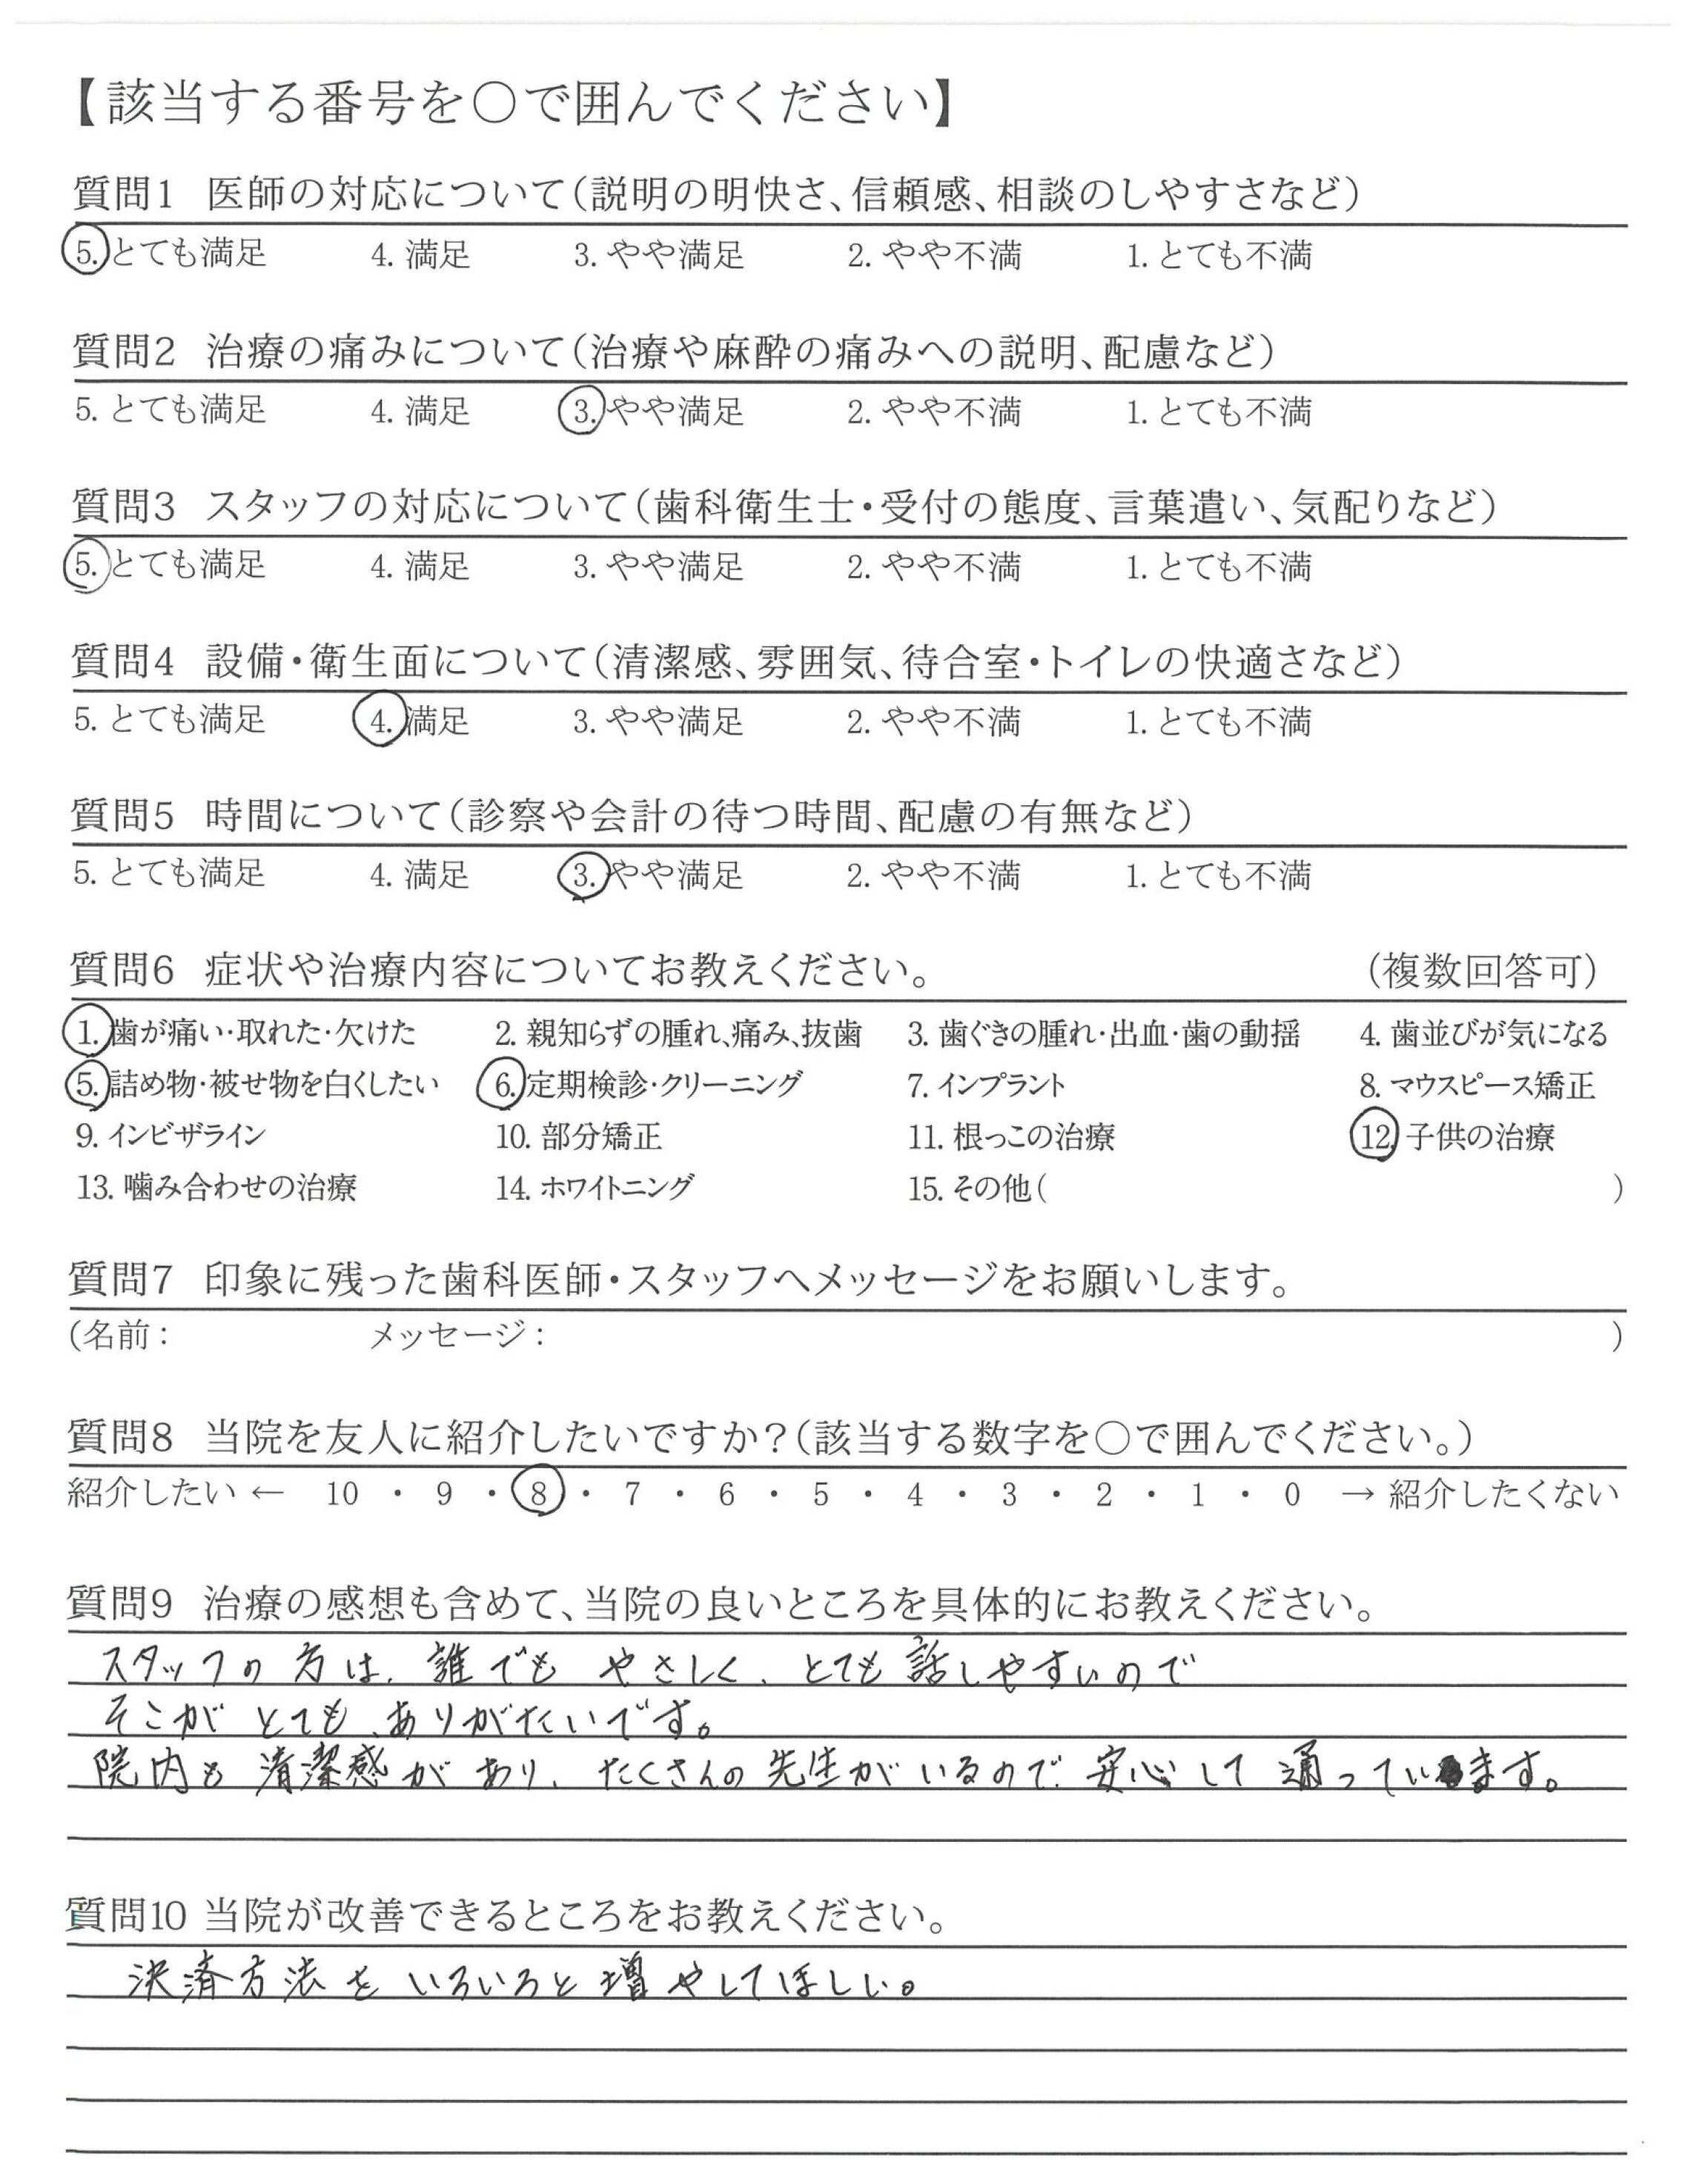 【該当する番号を○で囲んでください】
質問1 医師の対応について(説明の明快さ、信頼感、相談のしやすさなど)
5. とても満足 4. 満足 3. やや満足 2. やや不満 1. とても不満
質問2 治療の痛みについて(治療や麻酔の痛みへの説明、配慮など)
5. とても満足 4. 満足 3. やや満足 2. やや不満 1. とても不満
質問3 スタッフの対応について(歯科衛生士・受付の態度、言葉遣い、気配りなど)
5. とても満足 4. 満足 3. やや満足 2. やや不満 1. とても不満
質問4 設備・衛生面について(清潔感、雰囲気、待合室・トイレの快適さなど)
5. とても満足 4. 満足 3. やや満足 2. やや不満 1. とても不満
質問5 時間について(診察や会計の待つ時間、配慮の有無など)
5. とても満足 4. 満足 3. やや満足 2. やや不満 1. とても不満
質問6 症状や治療内容についてお教えください。 (複数回答可)
1. 歯が痛い・取れた・欠けた 2. 親知らずの腫れ、痛み、抜歯 3. 歯ぐきの腫れ・出血・歯の動揺 4. 歯並びが気になる
5. 詰め物・被せ物を白くしたい 6. 定期検診・クリーニング 7. インプラント 8. マウスピース矯正
9. インビザライン 10. 部分矯正 11. 根っこの治療 12. 子供の治療
13. 噛み合わせの治療 14. ホワイトニング 15. その他( )
質問7 印象に残った歯科医師・スタッフへメッセージをお願いします。
(名前: メッセージ: )
質問8 当院を友人に紹介したいですか?(該当する数字を○で囲んでください。)
紹介したい ← 10 ・ 9 ・ 8 ・ 7 ・ 6 ・ 5 ・ 4 ・ 3 ・ 2 ・ 1 ・ 0 → 紹介したくない
質問9 治療の感想も含めて、当院の良いところを具体的にお教えください。
スタッフの方は、誰でもやさしく、とても話しやすいので
そこがとても、ありがたいです。
院内も清潔感があり、たくさんの先生がいるので、安心して通っています。
質問10 当院が改善できるところをお教えください。
決済方法をいろいろと増やしてほしい。